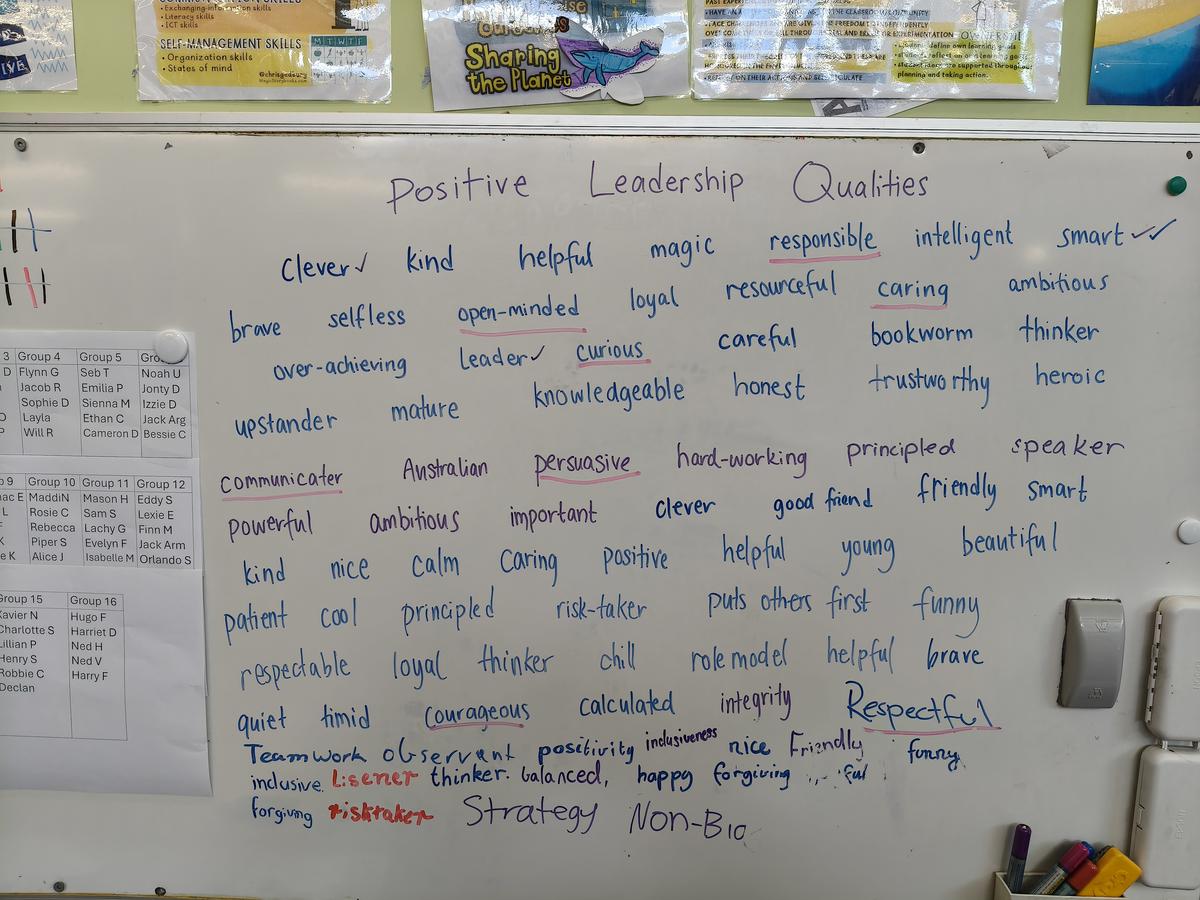 • Exchanging information skills
• Literacy skills
• ICT skills
SELF-MANAGEMENT SKILLS
• Organization skills
• States of mind
M T W T F
@chrisgadbury
Sharing
the Planet
planning and taking action.
Positive Leadership Qualities
Clever✓ kind helpful magic responsible intelligent smart✓✓
brave selfless open-minded loyal resourceful caring ambitious
over-achieving Leader✓ curious careful bookworm thinker
upstander mature knowledgeable honest trustworthy heroic
communicater Australian persuasive hard-working principled speaker
powerful ambitious important clever good friend friendly smart
kind nice calm Caring positive helpful young beautiful
patient cool principled risk-taker puts others first funny
respectable loyal thinker chill role model helpful brave
quiet timid Courageous calculated integrity Respectful
Teamwork observant positivity inclusiveness nice Friendly funny
inclusive Lisener thinker. balanced, happy forgiving ful
forgiving risktaker Strategy Non-Bio
3 Group 4 Group 5
D Flynn G Seb T Noah U
Jacob R Emilia P Jonty D
Sophie D Sienna M Izzie D
Layla Ethan C Jack Arg
P Will R Cameron D Bessie C
9 Group 10 Group 11 Group 12
ac E MaddiN Mason H Eddy S
L Rosie C Sam S Lexie E
Rebecca Lachy G Finn M
Piper S Evelyn F Jack Arm
e K Alice J Isabelle M Orlando S
Group 15 Group 16
Xavier N Hugo F
Charlotte S Harriet D
Lillian P Ned H
Henry S Ned V
Robbie C Harry F
Declan